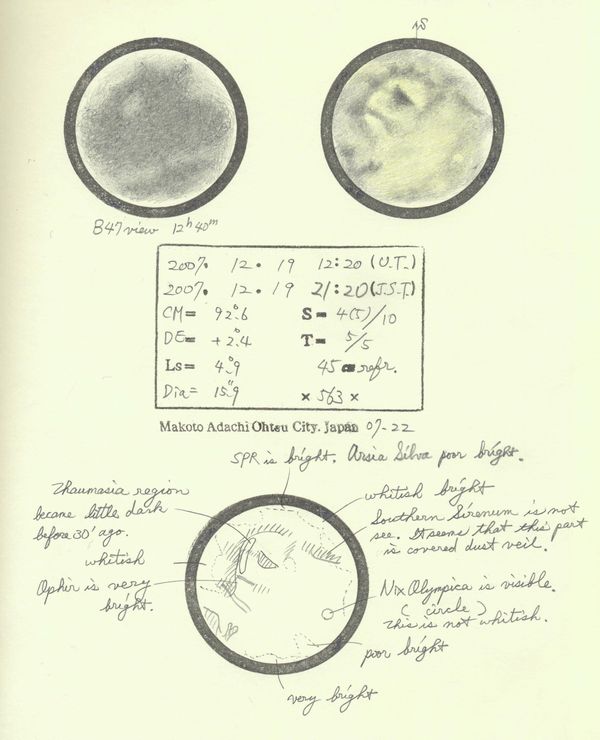 S
B47 view 12h40m
2007. 12. 19 12:20 (U.T.)
2007. 12. 19 21:20 (J.S.T)
CM= 92°.6 S= 4(5)/10
DE= +2°.4 T= 5/5
Ls= 4°.9 45 refr.
Dia= 15".9 × 563 ×
Makoto Adachi Ohtsu City. Japan 07-22
SPR is bright. Arsia Silva poor bright.
Thaumasia region
became little dark
before 30' ago.
whitish
Ophir is very
bright.
whitish bright
Southern Sirenum is not
see. It seems that this part
is covered dust veil.
Nix Olympica is visible.
( circle )
This is not whitish.
poor bright
very bright